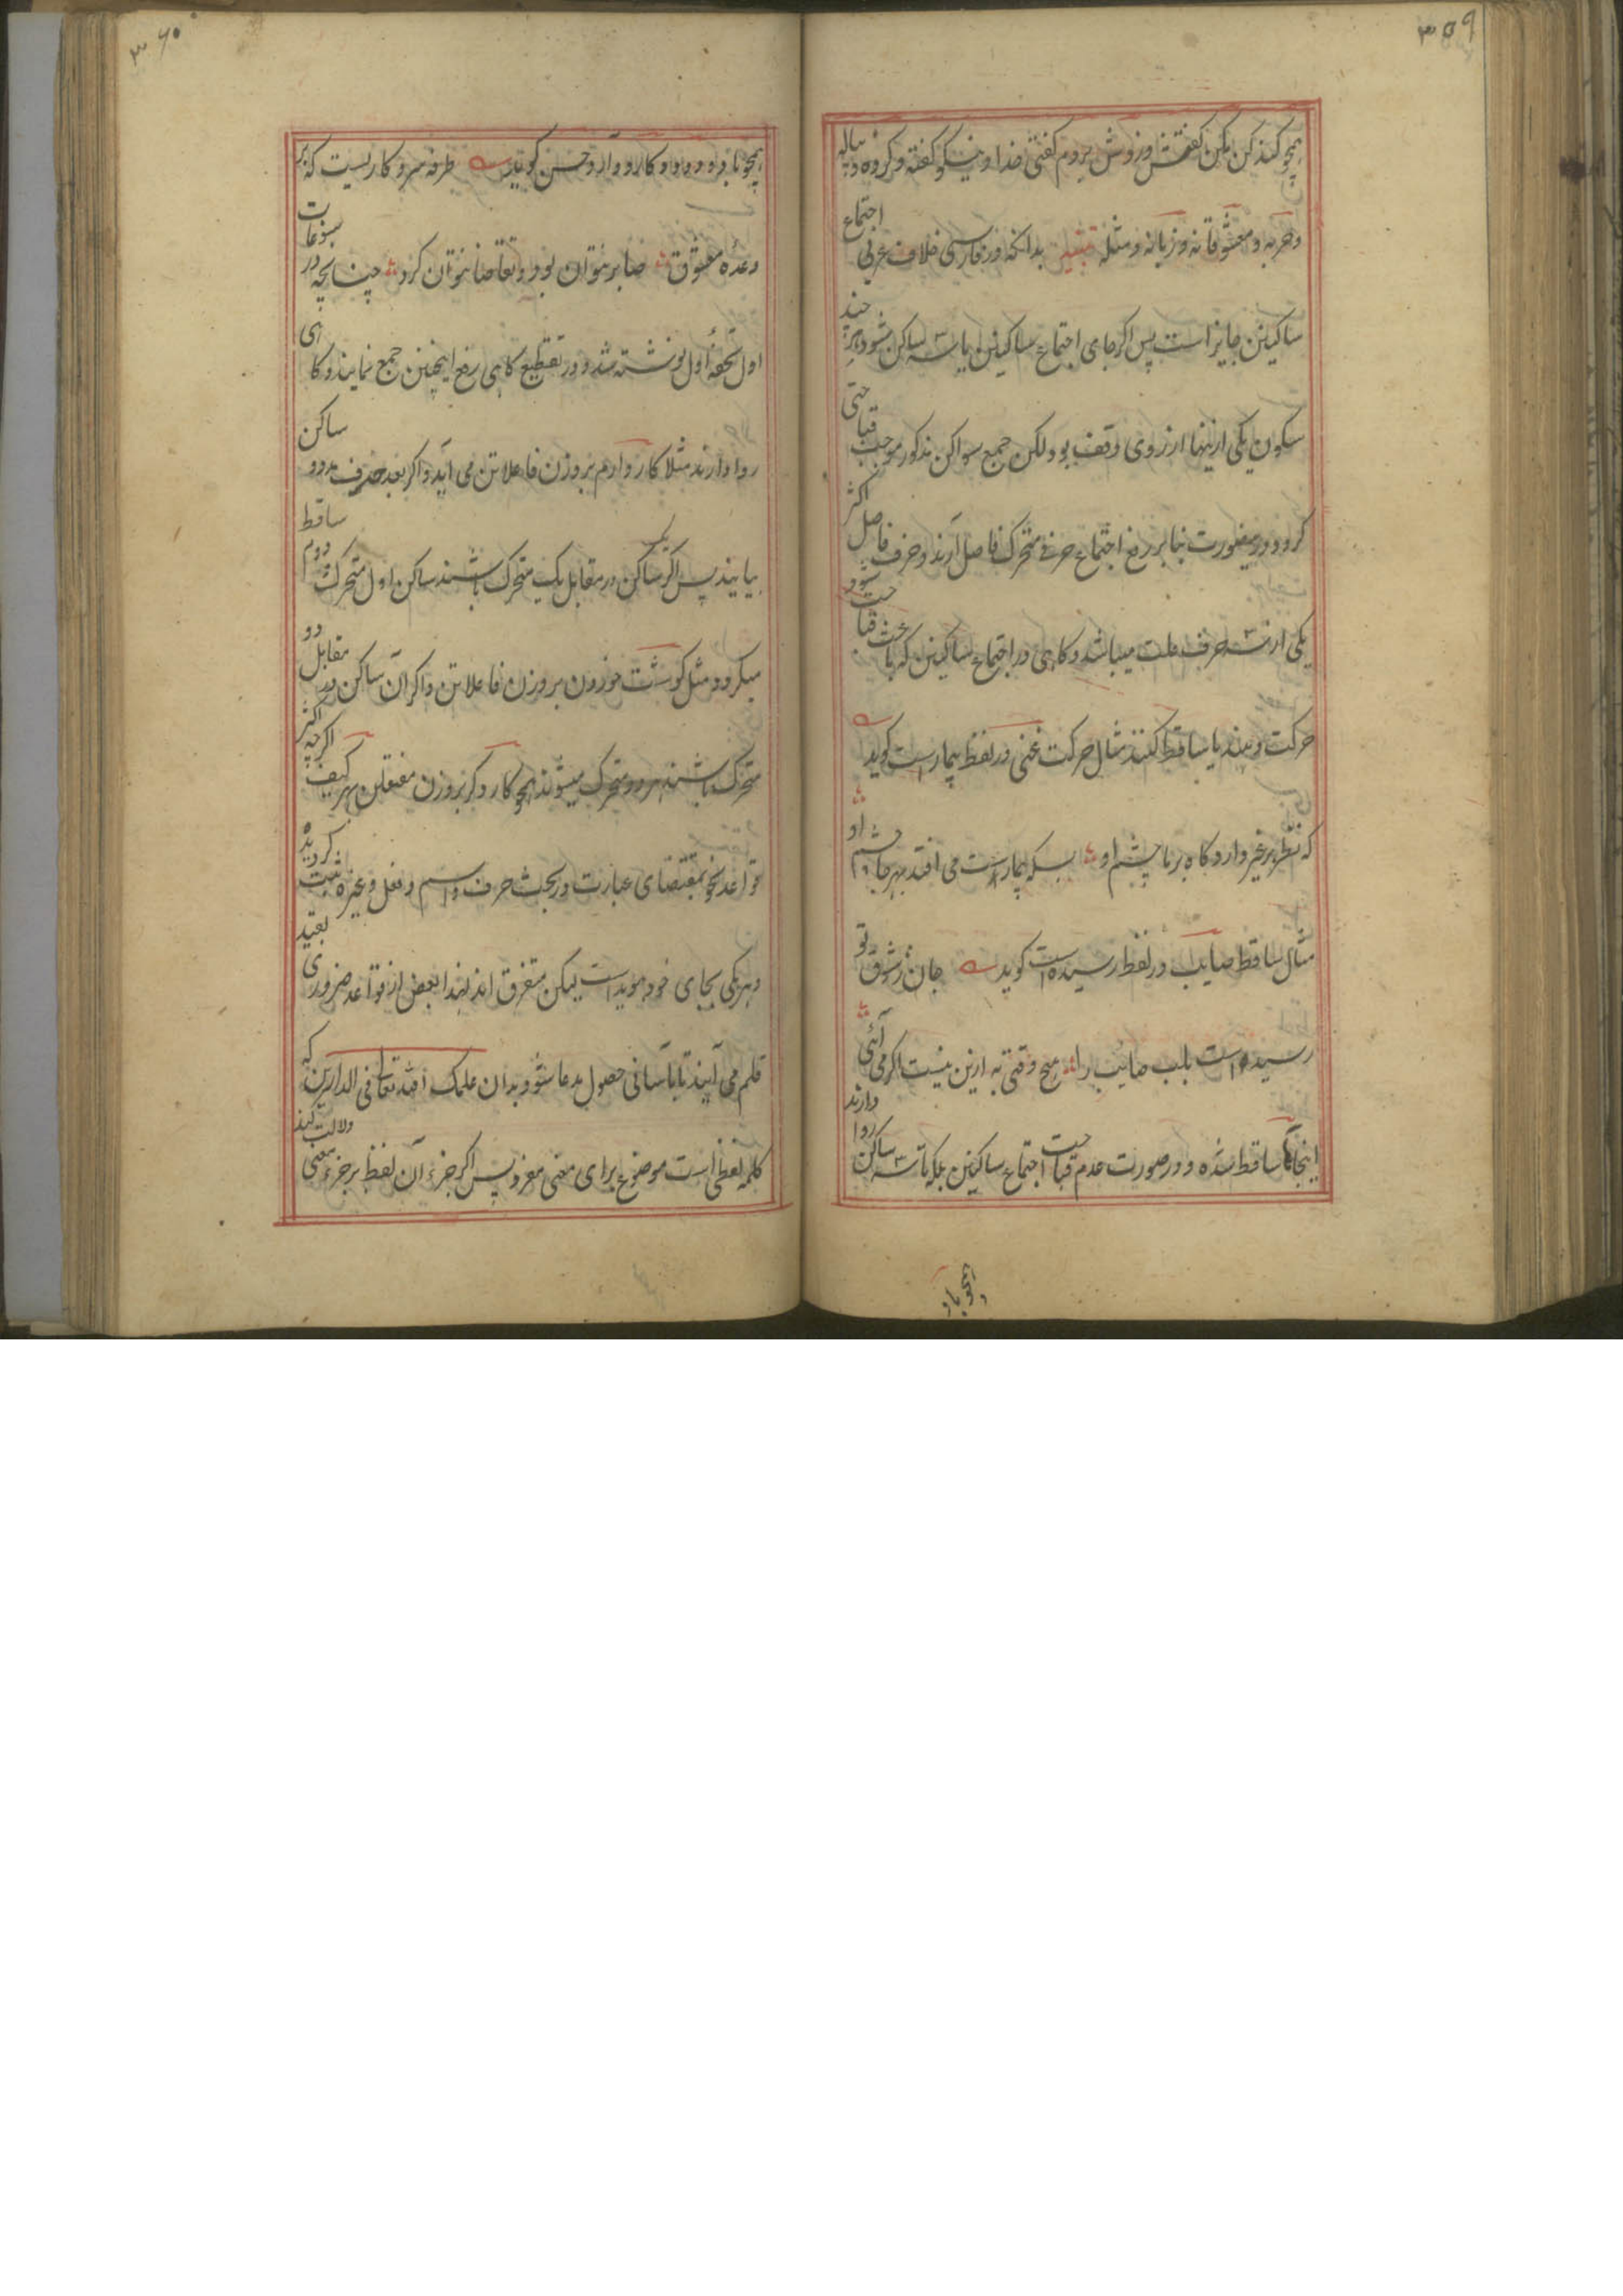 ۳۵۹
همچو کند کن مکن کفتش فروش بردم کفتی خدا و نیکو کفته و کرده و پیاله
و هر به و معشوقانه و زبانه و مثله تنبیه بدانکه در فارسی خلاف عربی اجتماع
ساکنین جایز است پس اکر جای اجتماع ساکنین یا سه ساکن شود هر چند
سکون یکی ازینها از روی وقف بود لکن جمع سواکن مذکور موجب قباحتی
کردد درینصورت بنابر رفع اجتماع حرفی متحرک فاصل آرند و حرف فاصل اکثر
یکی از سه حرف علت میباشد و کاهی در اجتماع ساکنین که باعث قباحت شود
حرکت دهند یا ساقط کنند مثال حرکت غنی در لفظ بیمار است کوید
که نظر بر غیر دارد کاه بر ما چشم او بسکه بیمار است می افتد بهر جا چشم او
مثال ساقط صایب در لفظ رسیده است کوید جان ز شوق تو
رسیده است بلب صائب را هیچ وقتی به ازین نیست اکر می آئی
اینجا ها ساقط شده و در صورت عدم قباحت اجتماع ساکنین بلکه تا سه ساکن روا دارند
همچو بار
۳۶۰
همچو بار و و کارد و آرد حسن کوید طرفه سرو کاریست که بر
وعده معشوق صابر نتوان بود و تقاضا نتوان کرد چنانچه در
اول تحفهٔ اول نوشته شد و در تقطیع کاهی رفع اینچنین جمع نمایند و کاهی
روا دارند مثلا کار دارم بر وزن فاعلاتن می آید و اکر بعد حرف مد دو ساکن
بیایند پس اکر ساکن در مقابل یک متحرک باشند ساکن اول متحرک دوم ساقط
میکردد مثل کوشت خوردن بر وزن فاعلاتن و اکر آن ساکن در مقابل دو
متحرک باشند هر دو متحرک میشوند همچو کارد کر بر وزن مفتعلن بهر کیف اکرچه اکثر
قواعد نحو بمقتضای عبارت در بحث حرف و اسم و فعل و غیره ثبت کردیده
و هر یکی بجای خود موید است لیکن متفرق اند لهذا بعض از قواعد ضروری بقید
قلم می آیند تا بآسانی حصول مدعا شود بدان علمک الله تعالی فی الدارین که
کلمه لفظی است موضوع برای معنی مفرد پس اکر جزء آن لفظ بر جزء معنی دلالت کند